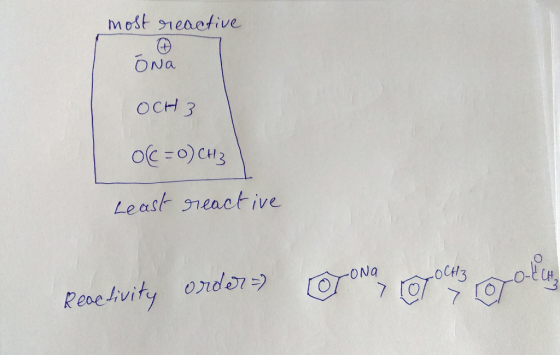 most reactive
⊕
ŌNa
OCH3
O(C=O)CH3
Least reactive
Reactivity order ⇒ ONa > OCH3 > O-C CH3
O